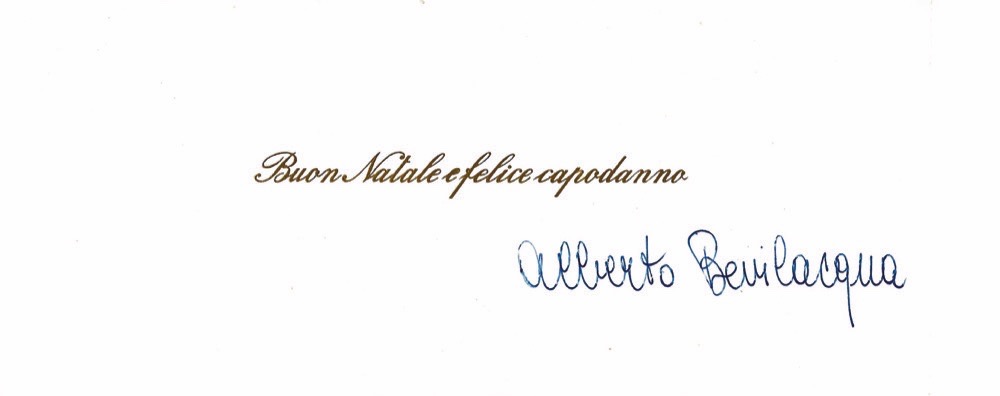 Buon Natale e felice capodanno
Alberto Bevilacqua